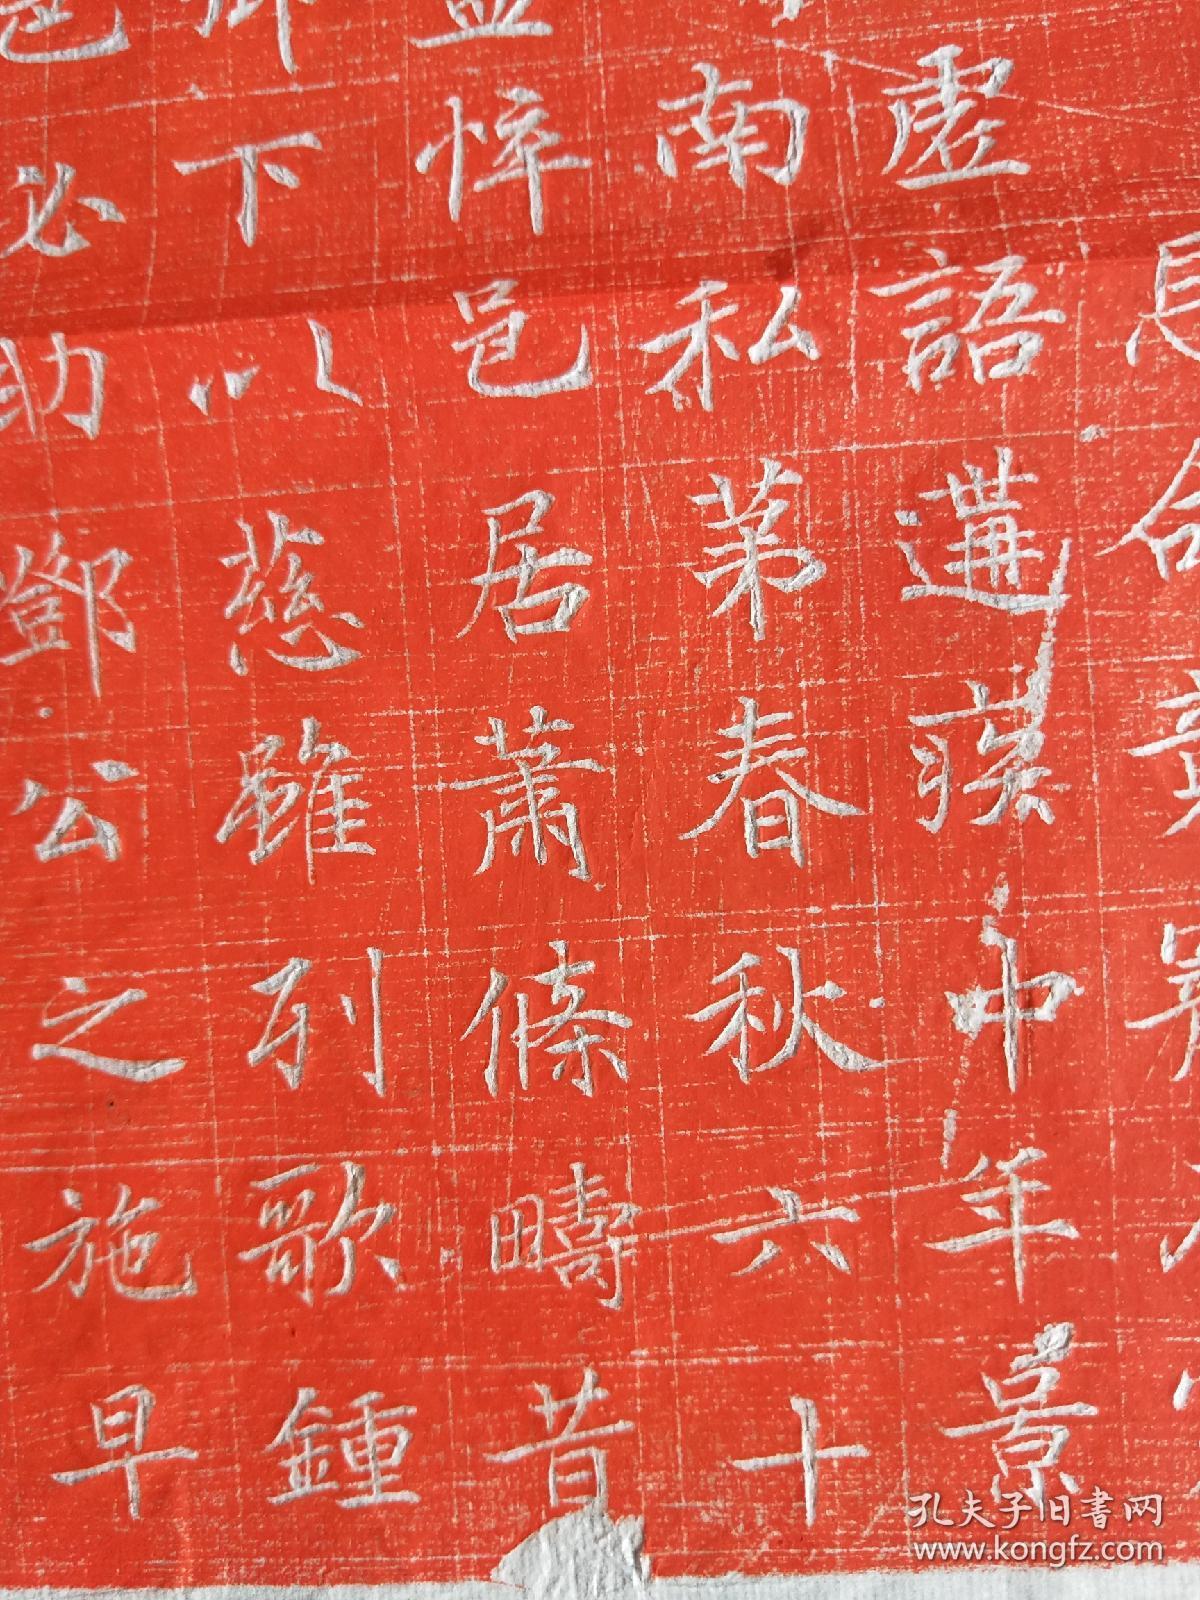 命
虗語遘疾中年景
南私苐春秋六十
悴邑居蕭條疇昔
下以慈雖列歌鍾
必助鄧公之施早
孔夫子旧書网
www.kongfz.com